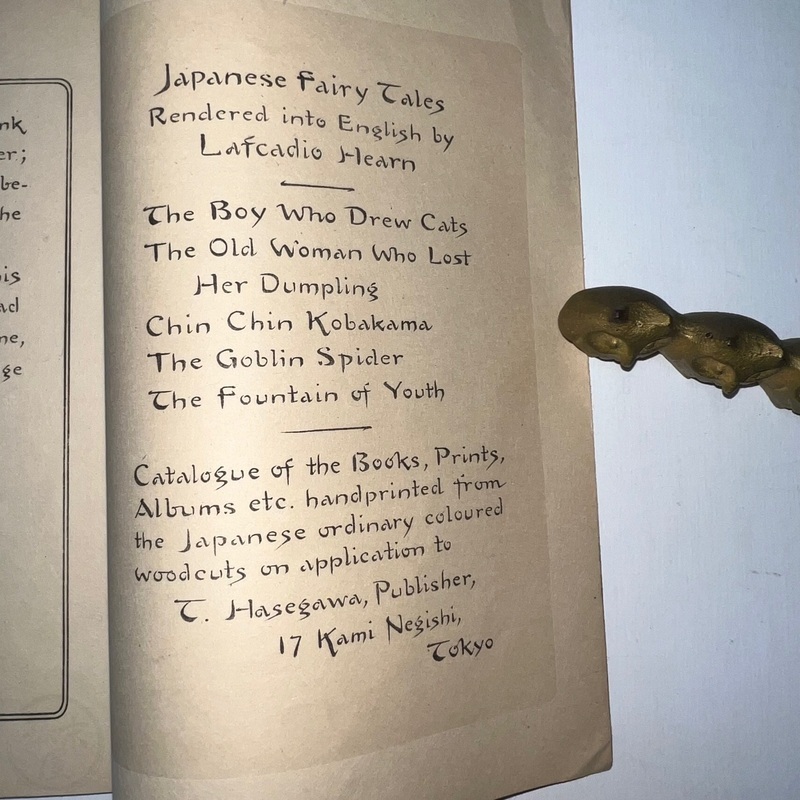 nk
er;
be-
he
is
ad
ne,
ge
Japanese Fairy Tales
Rendered into English by
Lafcadio Hearn
The Boy Who Drew Cats
The Old Woman Who Lost
Her Dumpling
Chin Chin Kobakama
The Goblin Spider
The Fountain of Youth
Catalogue of the Books, Prints,
Albums etc. handprinted from
the Japanese ordinary coloured
woodcuts on application to
T. Hasegawa, Publisher,
17 Kami Negishi,
Tokyo